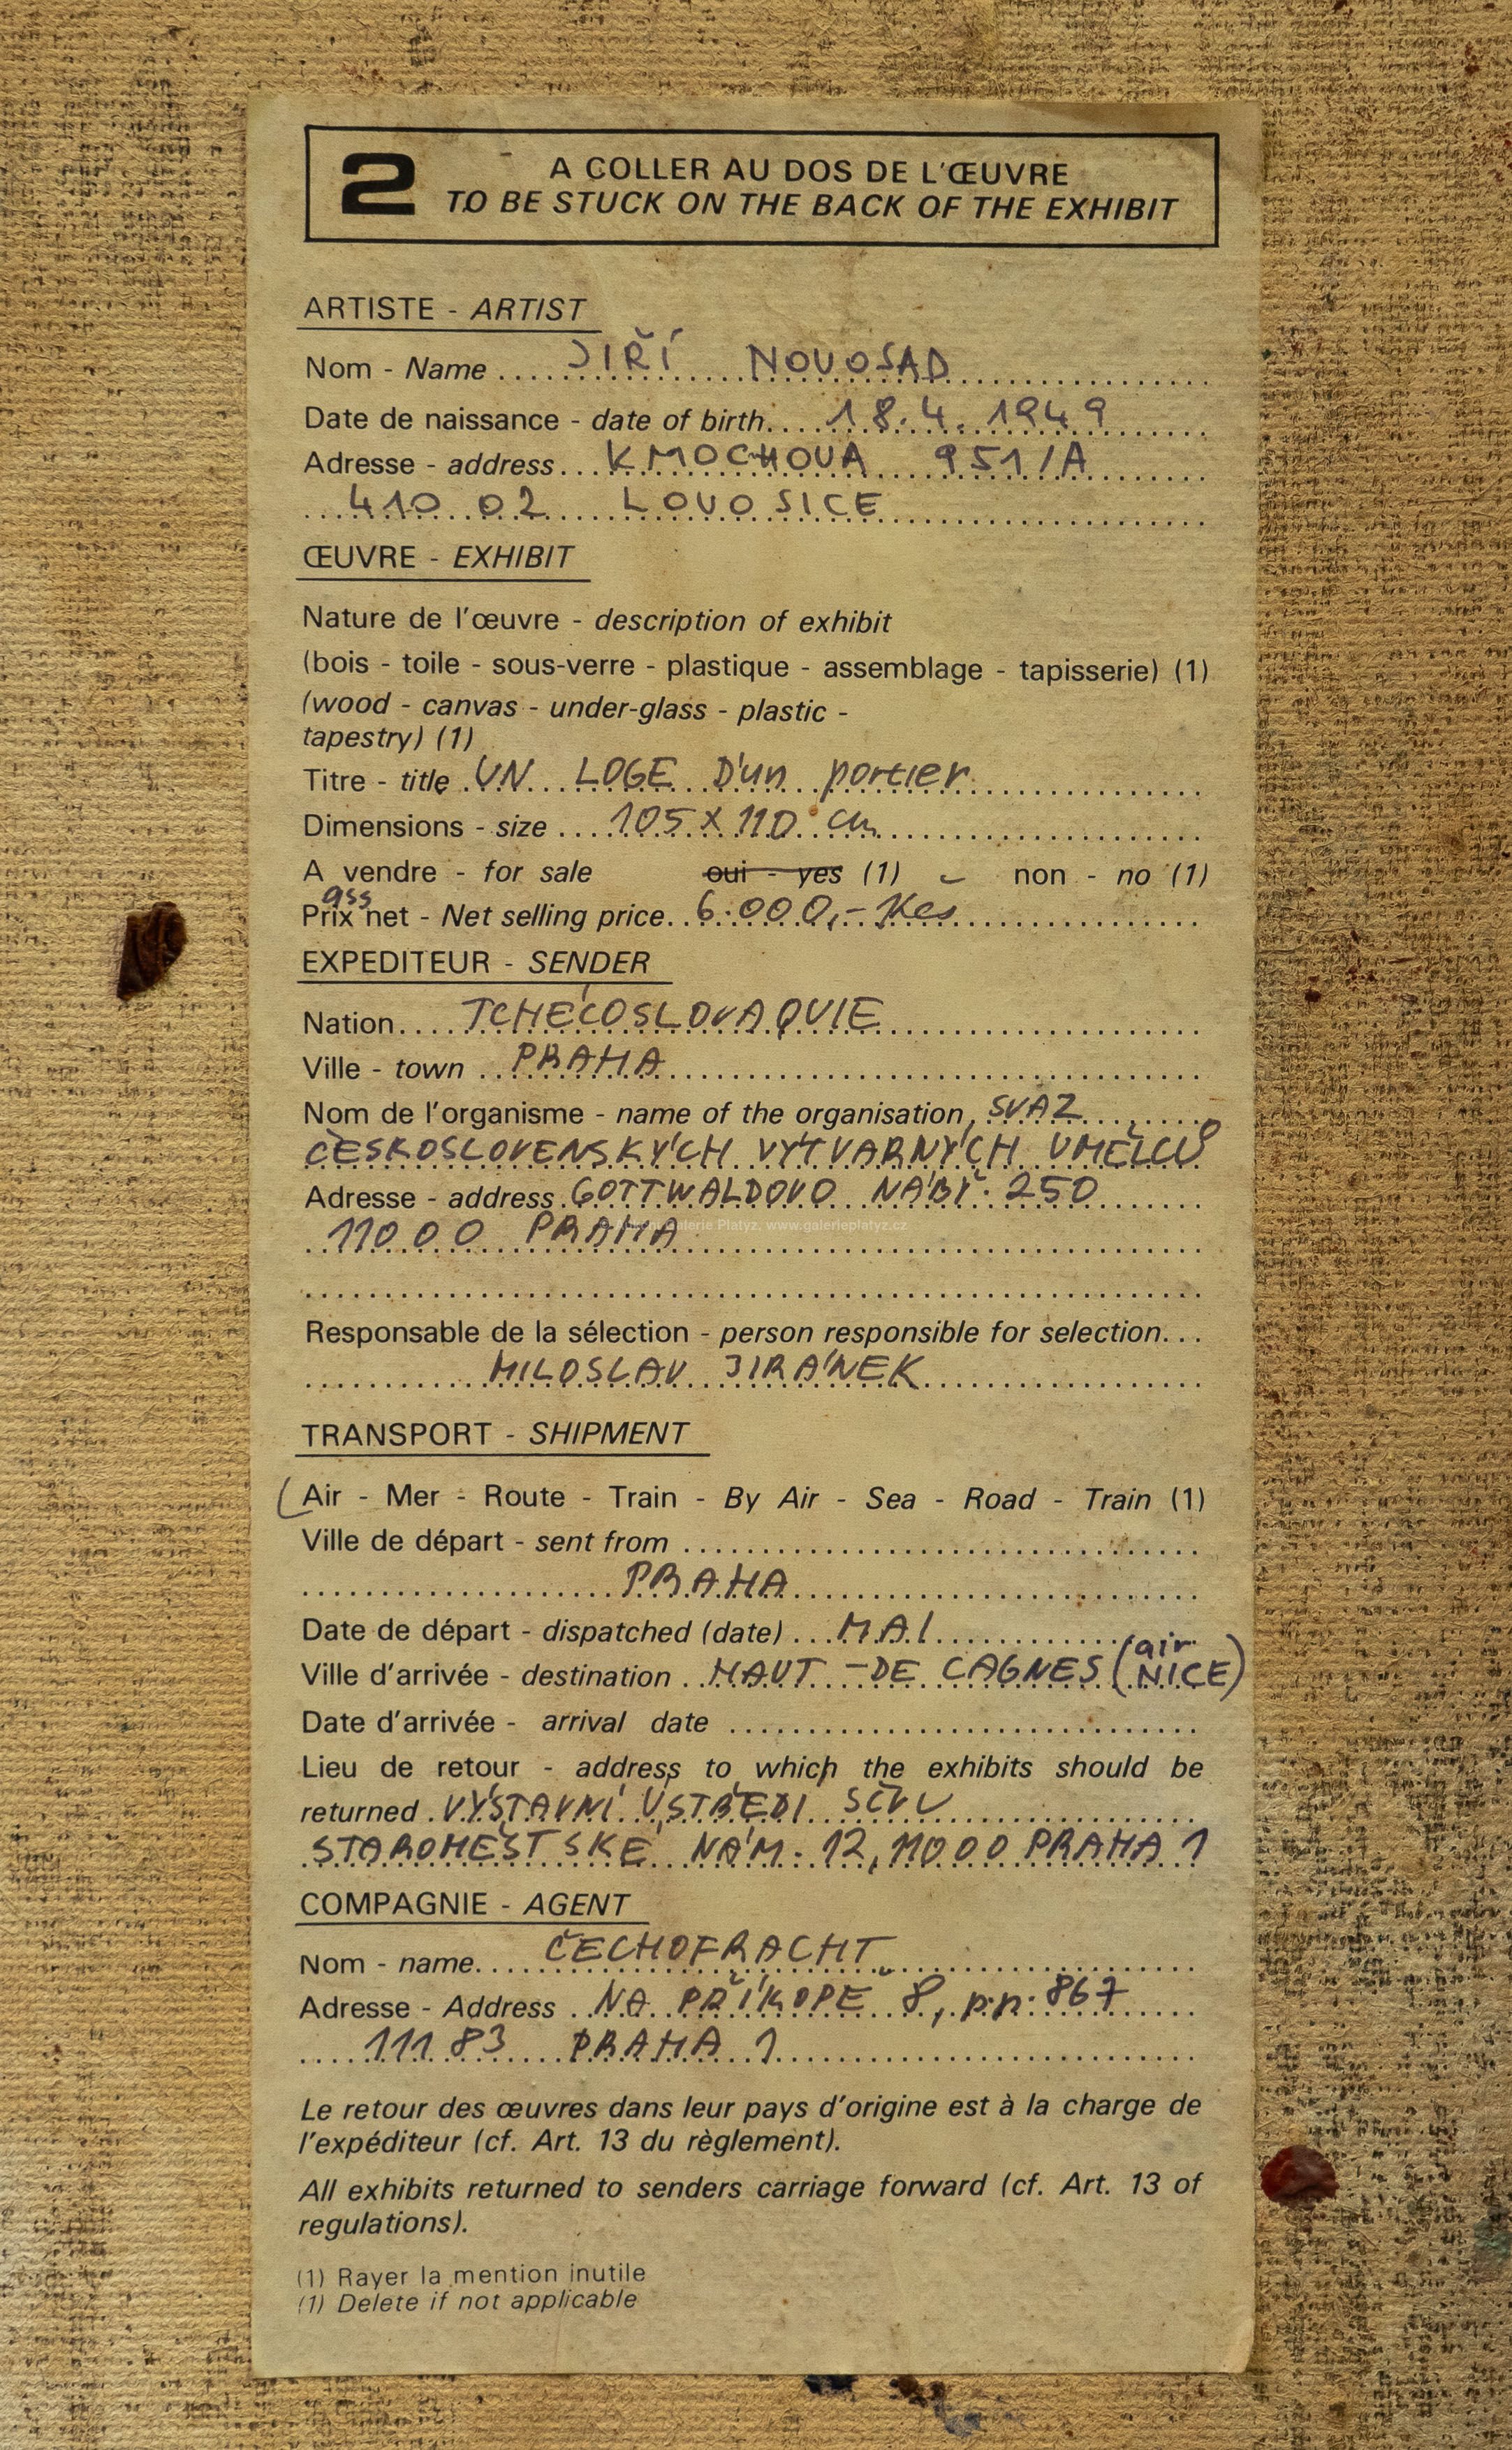 2
A COLLER AU DOS DE L'ŒUVRE
TO BE STUCK ON THE BACK OF THE EXHIBIT
ARTISTE - ARTIST
Nom - Name .... JIŘÍ NOVOSAD
Date de naissance - date of birth.... 18.4.1949
Adresse - address... KMOCHOVA 951/A
410 02 LOVOSICE
ŒUVRE - EXHIBIT
Nature de l'œuvre - description of exhibit
(bois - toile - sous-verre - plastique - assemblage - tapisserie) (1)
(wood - canvas - under-glass - plastic -
tapestry) (1)
Titre - title . UN LOGE D'un portier
Dimensions - size .... 105 X 110 cm
A vendre - for sale oui - yes (1) non - no (1)
ass
Prix net - Net selling price.. 6.000,- Kcs
EXPEDITEUR - SENDER
Nation.... TCHÉCOSLOVAQUIE
Ville - town .. PRAHA
Nom de l'organisme - name of the organisation, SVAZ
ČESKOSLOVENSKÝCH VÝTVARNÝCH UMĚLCŮ
Adresse - address. GOTTWALDOVO NÁBŘ. 250
11000 PRAHA
Galerie Platyz, www.galerieplatyz.cz
Responsable de la sélection - person responsible for selection...
MILOSLAV JIRÁNEK
TRANSPORT - SHIPMENT
(Air - Mer - Route - Train - By Air - Sea - Road - Train (1)
Ville de départ - sent from
PRAHA
Date de départ - dispatched (date) ... MAI
Ville d'arrivée - destination .. HAUT - DE CAGNES (air NICE)
Date d'arrivée - arrival date
Lieu de retour - address to which the exhibits should be
returned . VÝSTAVNÍ ÚSTŘEDÍ SČVU
STAROMĚSTSKÉ NÁM. 12, 11000 PRAHA 1
COMPAGNIE - AGENT
Nom - name.... ČECHOFRACHT
Adresse - Address .. NA PŘÍKOPĚ 8, p.p. 867
111 83 PRAHA 1
Le retour des œuvres dans leur pays d'origine est à la charge de
l'expéditeur (cf. Art. 13 du règlement).
All exhibits returned to senders carriage forward (cf. Art. 13 of
regulations).
(1) Rayer la mention inutile
(1) Delete if not applicable